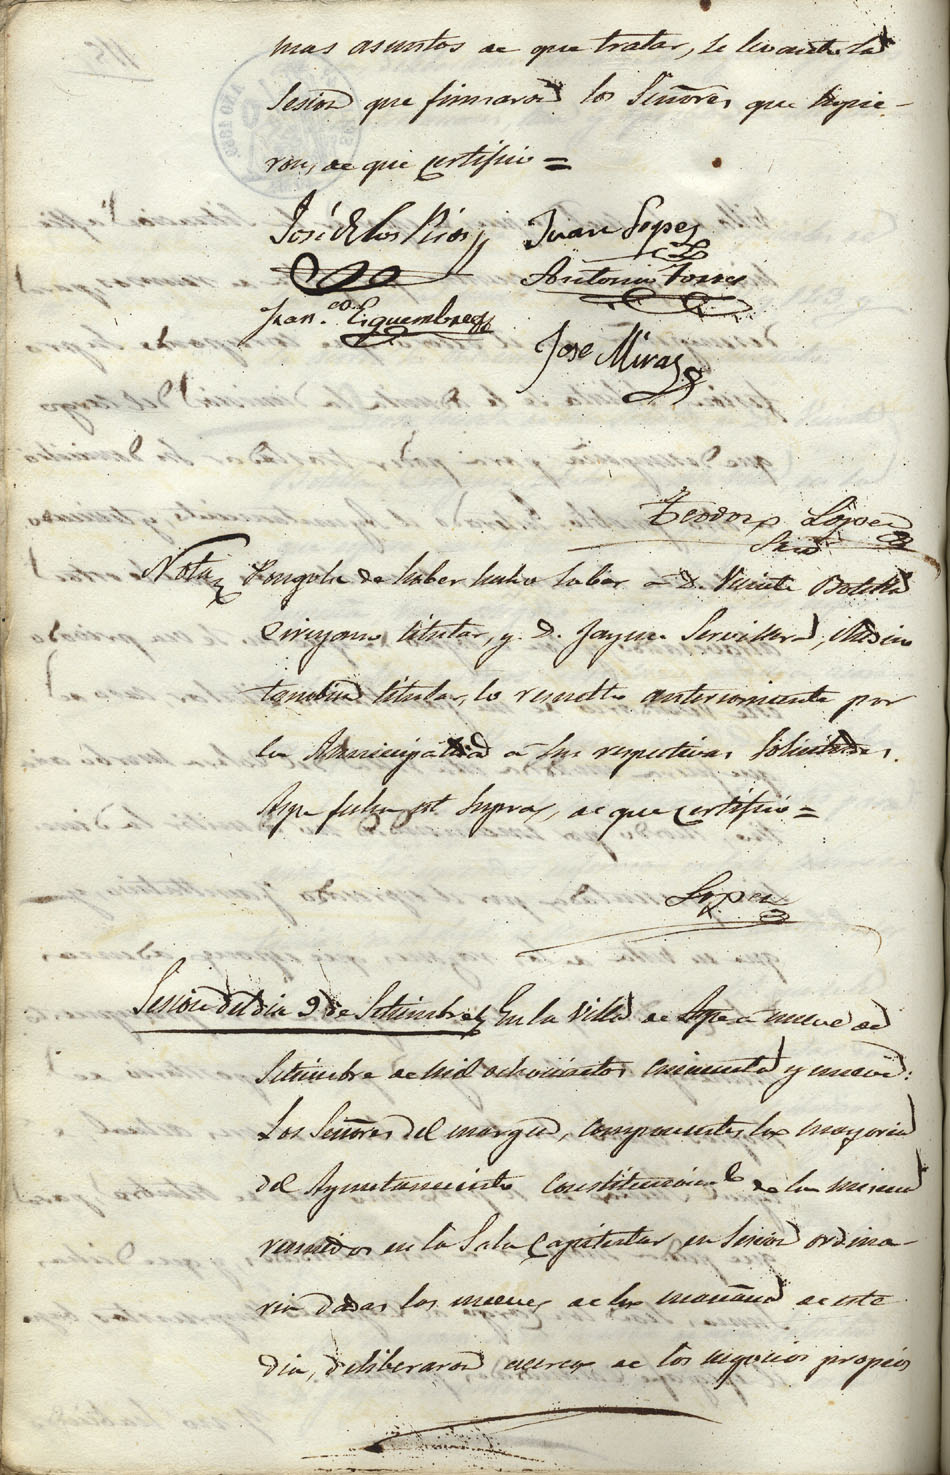 mas asuntos de que tratar, se levantó la
Sesion que firmaron los Señores que supie-
ron, de que certifico =
José de los Rios
Juan Lopez
Antonio Torres
Fran.co Esquembre
Jose Miras
Teodoro Lopez
Srio
Nota Pongola de haber hecho saber a D. Vicente Botella
Cirujano titular, y D. Jayme Servillera, Medico
tambien titular, lo resuelto anteriormente por
la Municipalidad a sus respectivas solicitudes.
Aspe fecha ut supra, de que certifico =
Lopez
Sesion del dia 9 de Setiembre En la Villa de Aspe a nueve de
Setiembre de mil ochocientos cincuenta y nueve:
Los Señores del margen, componentes la mayoria
del Ayuntamiento Constitucional de la misma
reunidos en la Sala Capitular en Sesion ordina-
ria dadas las nueve de la mañana de este
dia, deliberaron acerca de los negocios propios